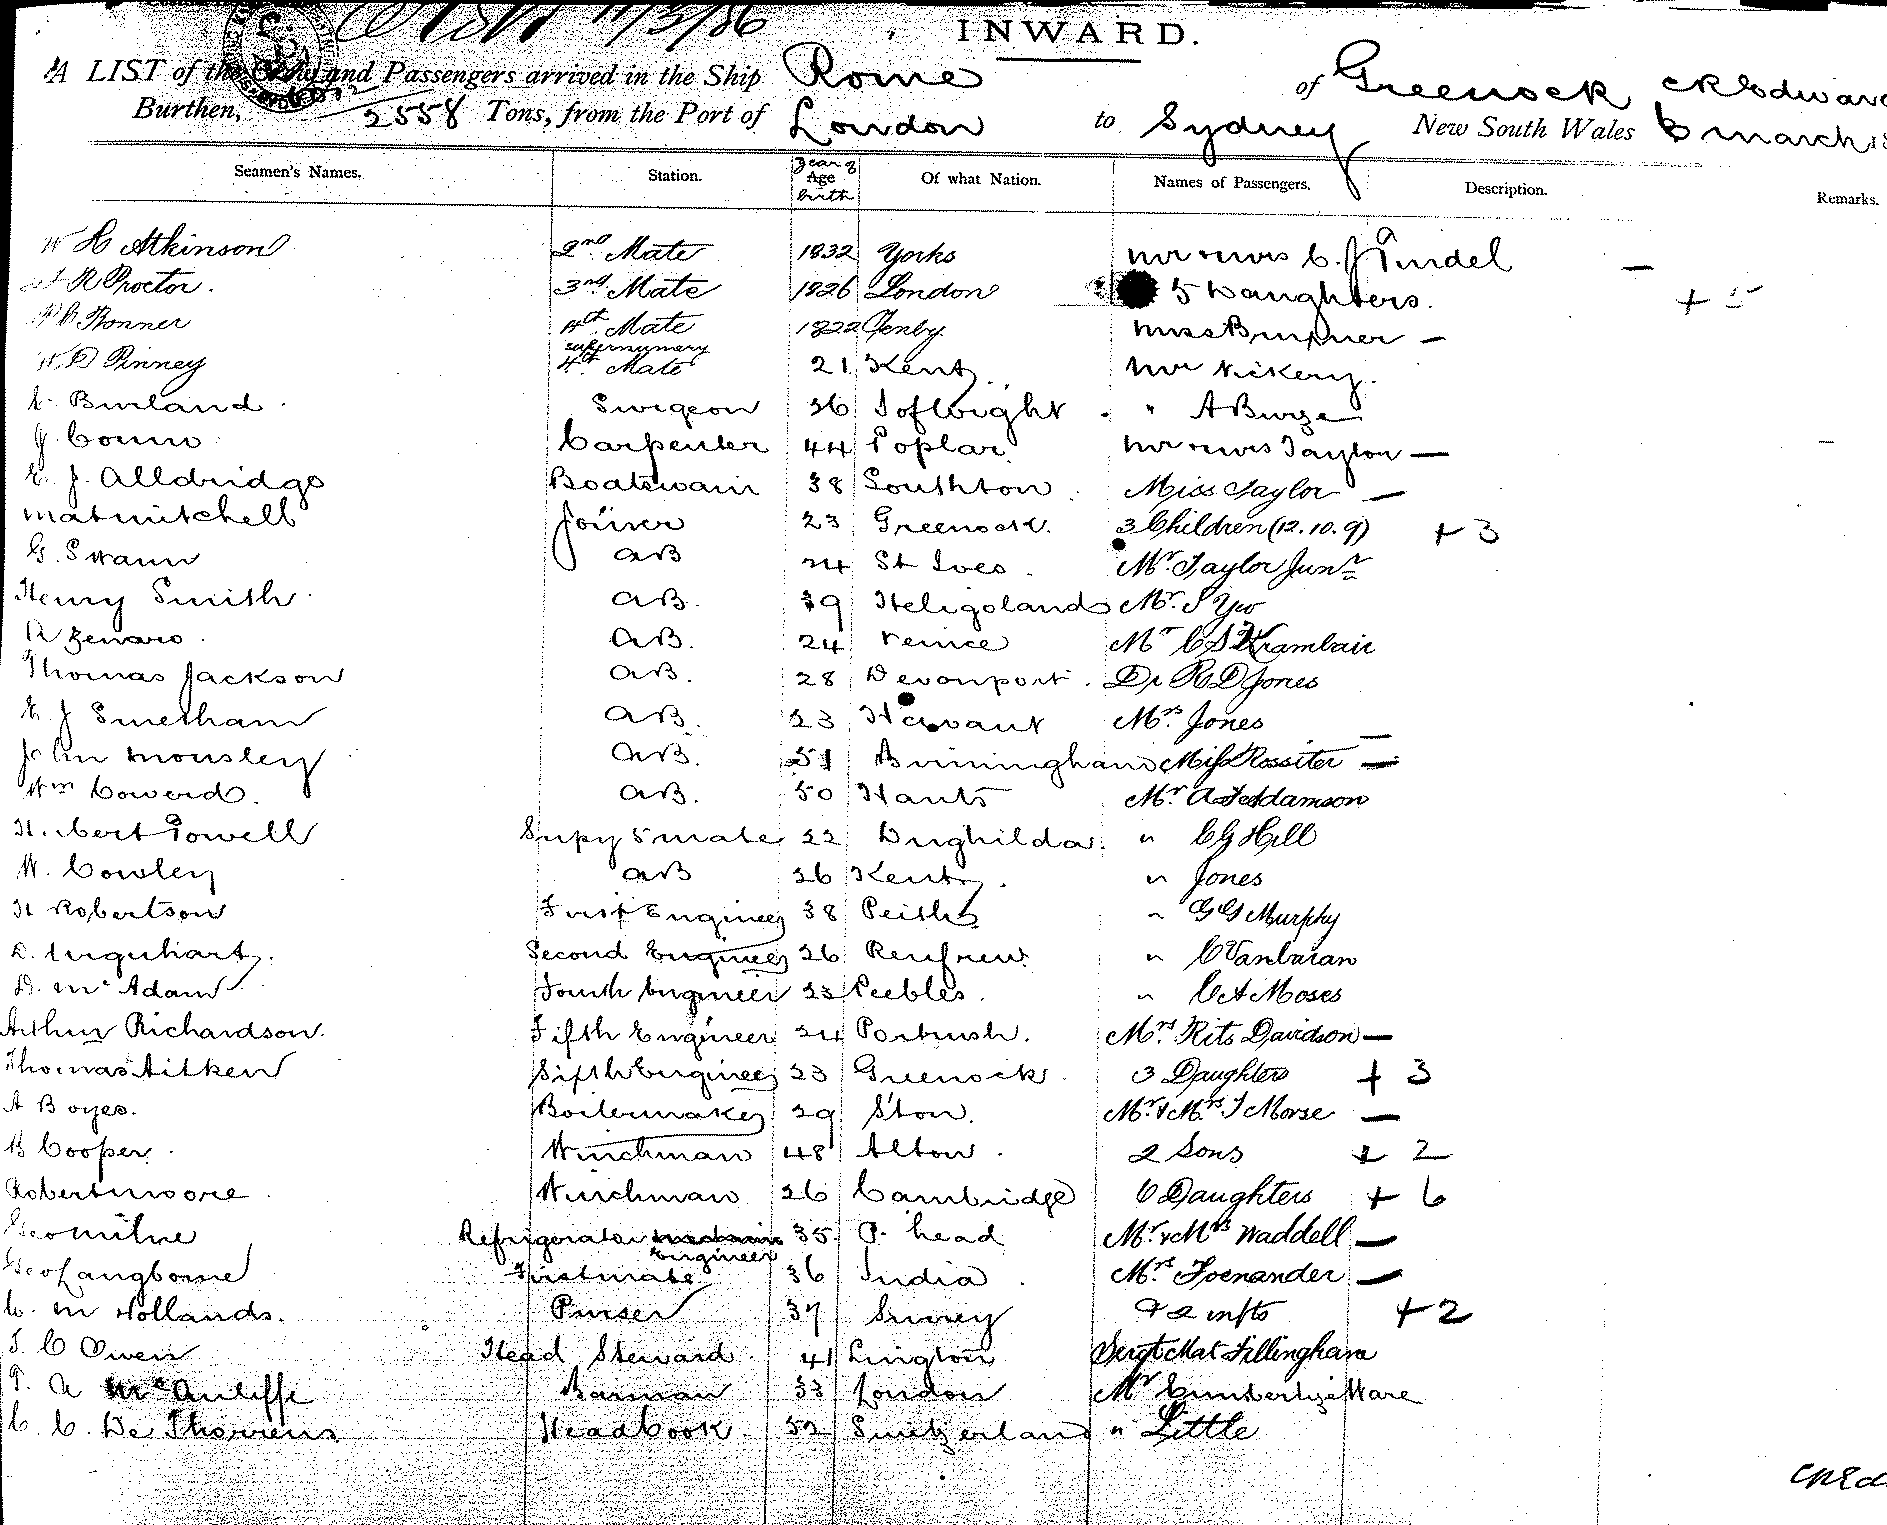 11/3/86
INWARD.
A LIST of the Crew and Passengers arrived in the Ship Rome of Greenock
Burthen, 2558 Tons, from the Port of London to Sydney New South Wales 6 March
Seamen's Names. Station. Year of Age birth Of what Nation. Names of Passengers. Description. Remarks.
W H Atkinson 2nd Mate 1832 Yorks Mr & Mrs C. J Tindel —
R Proctor. 3rd Mate 1826 London 5 Daughters. + 5
Bonner 4th Mate 1822 Tenby Miss —
W D Pinney supernumery 4th Mate 21 Kent Mr Vickery.
Burland Surgeon 36 I of Wight " A Burge
J Conn Carpenter 44 Poplar Mr & Mrs Taylor —
E. J. Alldridge Boatswain 38 Southton Miss Taylor —
Mat Mitchell Joiner 23 Greenock. 3 Children (12. 10. 9) + 3
G. Swann AB 24 St Ives Mr. Taylor Junr
Henry Smith AB. 39 Heligoland Mr. S Yeo
R Zenaro AB. 24 Venice Mr C S Krambair
Thomas Jackson AB. 28 Devonport. Dr R D Jones
E J Smetham AB. 23 Havant Mrs. Jones —
John Mousley AB. 51 Birmingham Miss Rossiter —
Wm Cowerd. AB. 50 Hants Mr. Adamson
Herbert Powell Supy 5 mate 22 " C G Hill
W. Cowley AB 26 Kent " Jones
H Robertson First Engineer 38 Perth " G G Murphy
D. Urquhart. Second Engineer 26 Renfrew. "
D. McAdam Fourth Engineer 23 Peebles. " C A Moses
Arthur Richardson. Fifth Engineer 24 Portrush. Mrs. Rits Davidson —
Thomas Aitken Fifth Engineer 23 Greenock. 3 Daughters + 3
A Boyes. Boilermaker 29 Ston. Mr. & Mrs. J Morse —
B Cooper. Winchman 48 Alton. 2 Sons + 2
Robert Moore Winchman 26 Cambridge 6 Daughters + 6
Geo Milne Refrigerator 35 P. head Mr. & Mrs Waddell —
Engineer
Geo Langborne First mate 36 India Mrs. Foenander —
C. M Hollands. Purser 37 Surrey & 2 infts + 2
J. C Owen Head Steward 41 Mat Fillingham
P. A McAuliffe Barman 33 London Mr Ware
C. C. De Thorrens Head Cook 52 Switzerland " Little